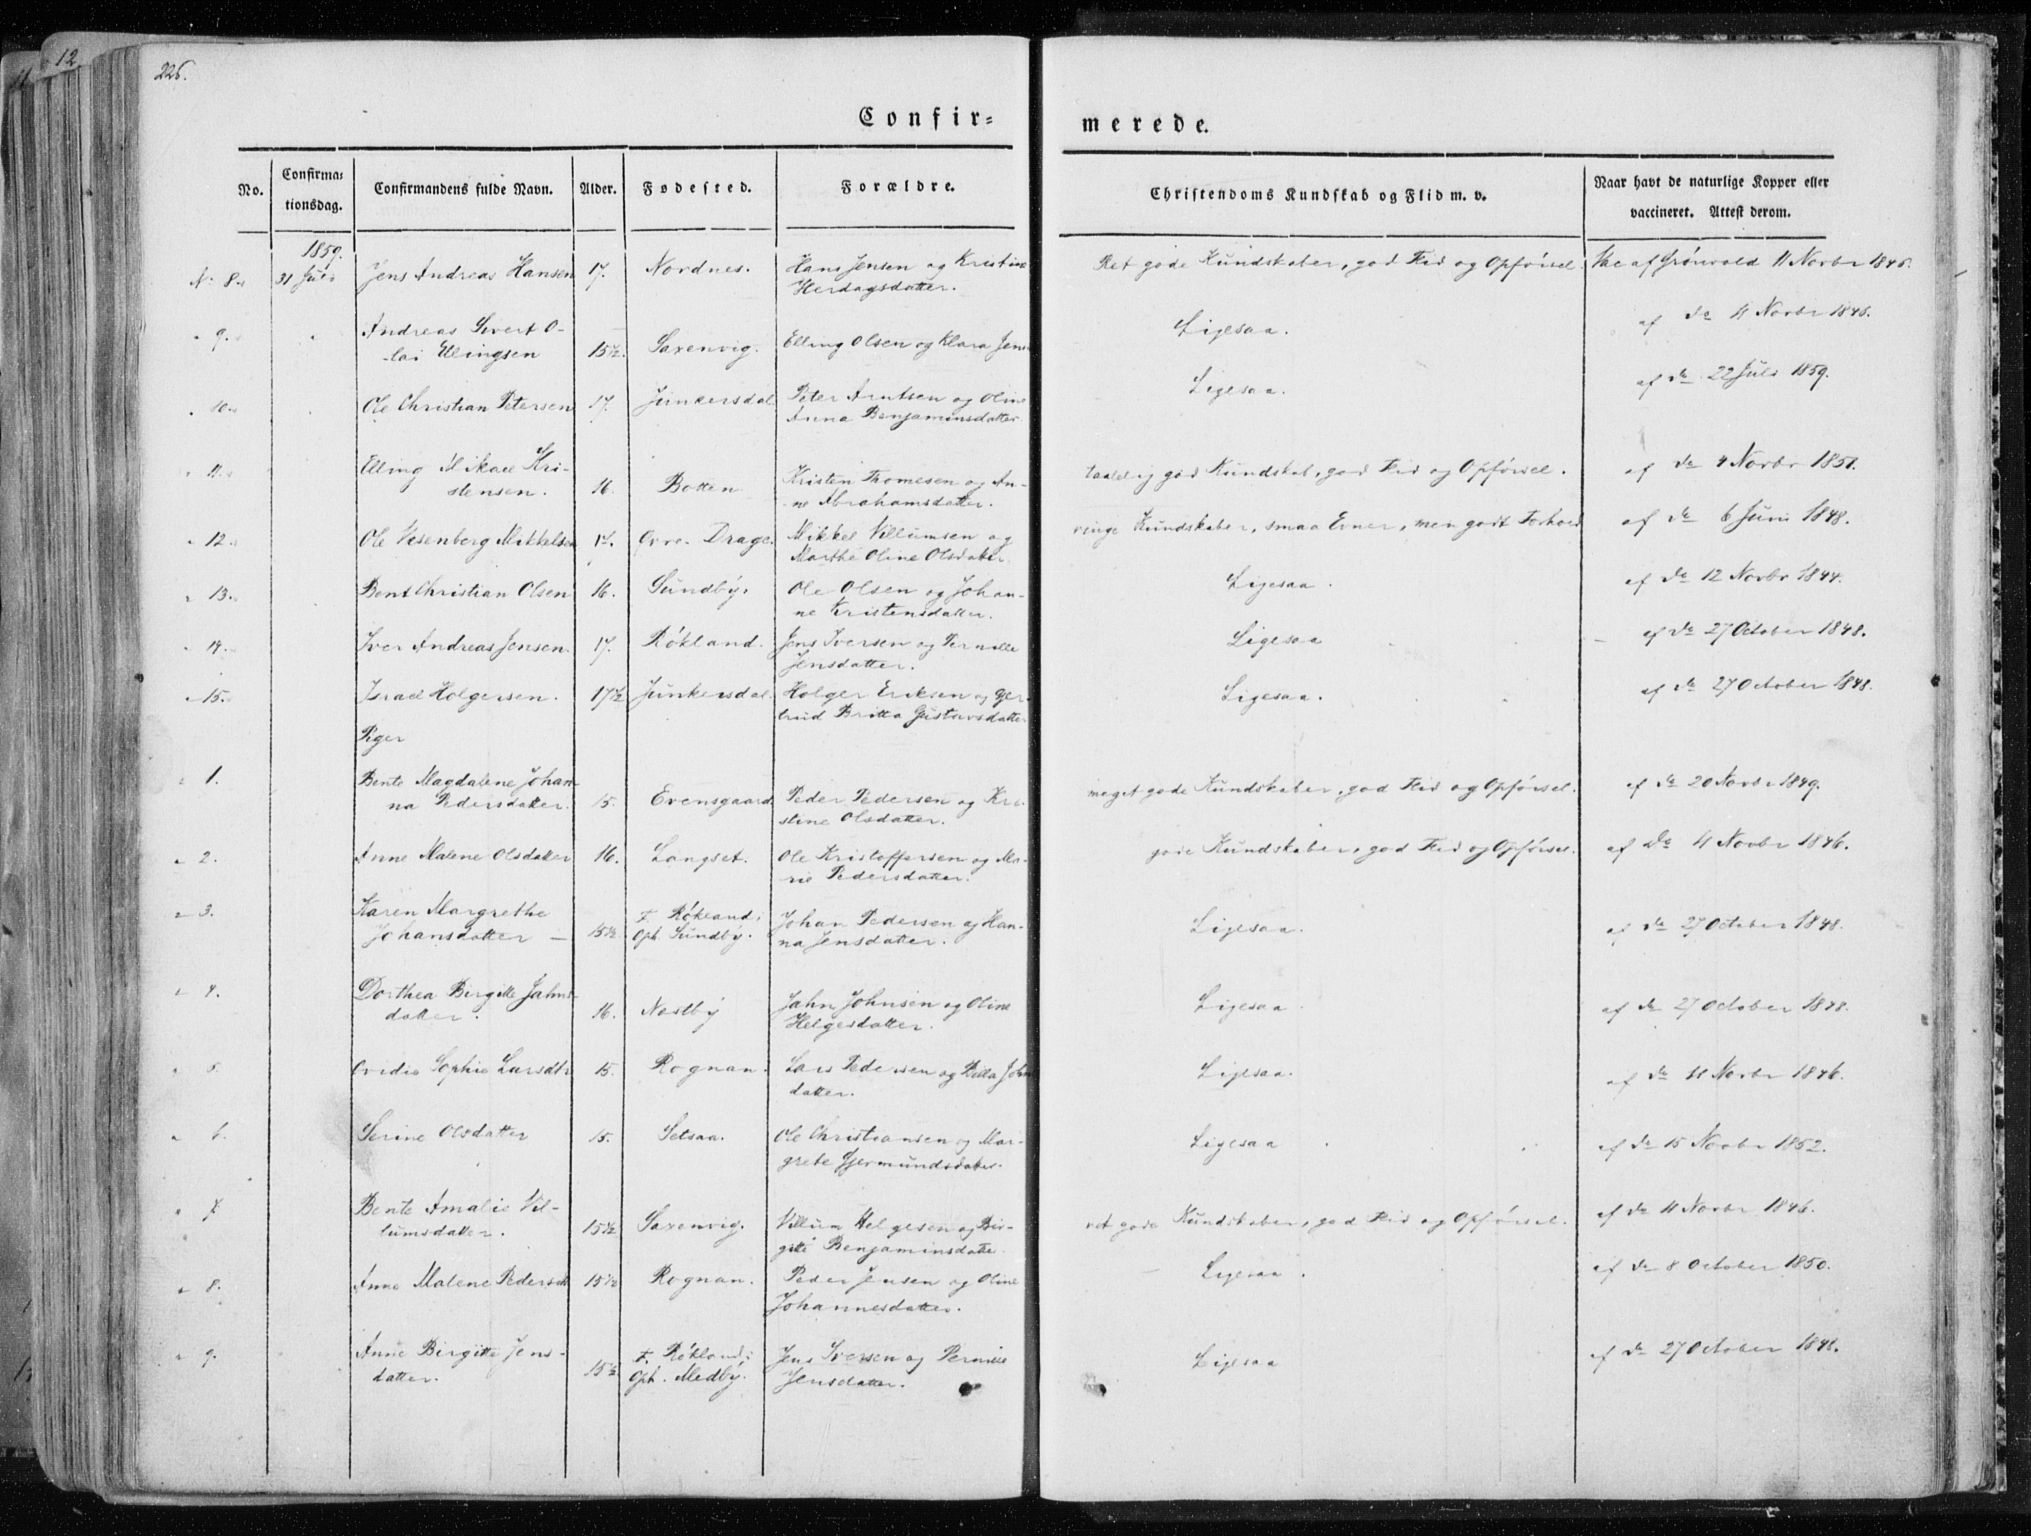 12
226.
Confir=
merede.
No.
Confirma=
tionsdag.
Confirmandens fulde Navn.
Alder.
Fødested.
Forældre.
Christendoms Kundskab og Flid m. v.
Naar havt de naturlige Kopper eller
vaccineret. Attest derom.
1859.
N. 8. 31 Juli Jens Andreas Hansen 17. Nordnes. Hans Jensen og Kristine
Herdagsdatter.
Ret gode Kundskaber, god Flid og Opførsel. Vac af Grønvold 11 Novbr 1846.
" 9. Andreas Sivert O-
lai Ellingsen 15½. Saxenvig. Elling Olsen og Klara Jens
Ligesaa. af do 11 Novbr 1846.
" 10. Ole Christian Petersen 17. Junkersdal Peter Arntsen og Oline
Anna Benjaminsdatter
Ligesaa. af do 22 Juli 1859.
" 11. Elling Mikael Kri-
stensen. 16. Botten Kristen Thomesen og An-
ne Abrahamsdatter.
taalelig god Kundskab, god Flid og Opførsel. af do 4 Novbr 1851.
" 12. Ole Vesenberg Mikkelsen 17. Øvre Drage. Mikkel Villumsen og
Marthe Oline Olsdatter
ringe Kundskaber, smaa Evner, men godt Forhold af do 6 Juni 1848.
" 13. Bent Christian Olsen 16. Sundby. Ole Olsen og Johan-
ne Kristensdatter.
Ligesaa. af do 12 Novbr 1844.
" 14. Iver Andreas Jensen 17. Røkland. Jens Iversen og Pernille
Jensdatter.
Ligesaa af do 27 October 1848.
" 15. Israel Holgersen. 17½ Junkersdal. Holger Eriksen og Ger-
trud Britta Gustavsdatter
Ligesaa. af do 27 October 1848.
Piger
" 1. Bente Magdalene Johan-
na Pedersdatter. 15. Evensgaard. Peder Pedersen og Kri-
stine Olsdatter.
meget gode Kundskaber, god Flid og Opførsel. af do 20 Novbr 1849.
" 2. Anne Malene Olsdatter 16. Langset. Ole Kristoffersen og Ma-
rie Pedersdatter.
gode Kundskaber, god Flid og Opførsel. af do 11 Novbr 1846.
" 3. Karen Margrethe
Johansdatter 15½ F. Røkland;
Oph. Sundby. Johan Pedersen og Han-
na Jensdatter.
Ligesaa. af do 27 October 1848.
" 4. Dorthea Birgitte Jahns-
datter. 16. Nestby Jahn Johnsen og Oline
Helgesdatter.
Ligesaa. af do 27 October 1848.
" 5. Ovidia Sophie Larsdtr 15. Rognan. Lars Pedersen og Berta John
datter.
Ligesaa. af do 11 Novbr 1846.
" 6. Serine Olsdatter 15. Setsaa. Ole Christiansen og Mar-
grete Gjermundsdatter.
Ligesaa af do 15 Novbr 1852.
" 7. Bente Amalie Vil-
lumsdatter. 15½ Saxenvig. Villum Helgesen og Bir-
gitte Benjaminsdatter.
ret gode Kundskaber, god Flid og Opførsel. af do 11 Novbr 1846.
" 8. Anne Malene Pedersdtr 15½ Rognan. Peder Jensen og Oline
Johannesdatter.
Ligesaa. af do 8 October 1850.
" 9. Anne Birgitte Jens-
datter. 15½ F. Røkland;
Oph. Medby. Jens Iversen og Pernille
Jensdatter.
Ligesaa af do 27 October 1848.